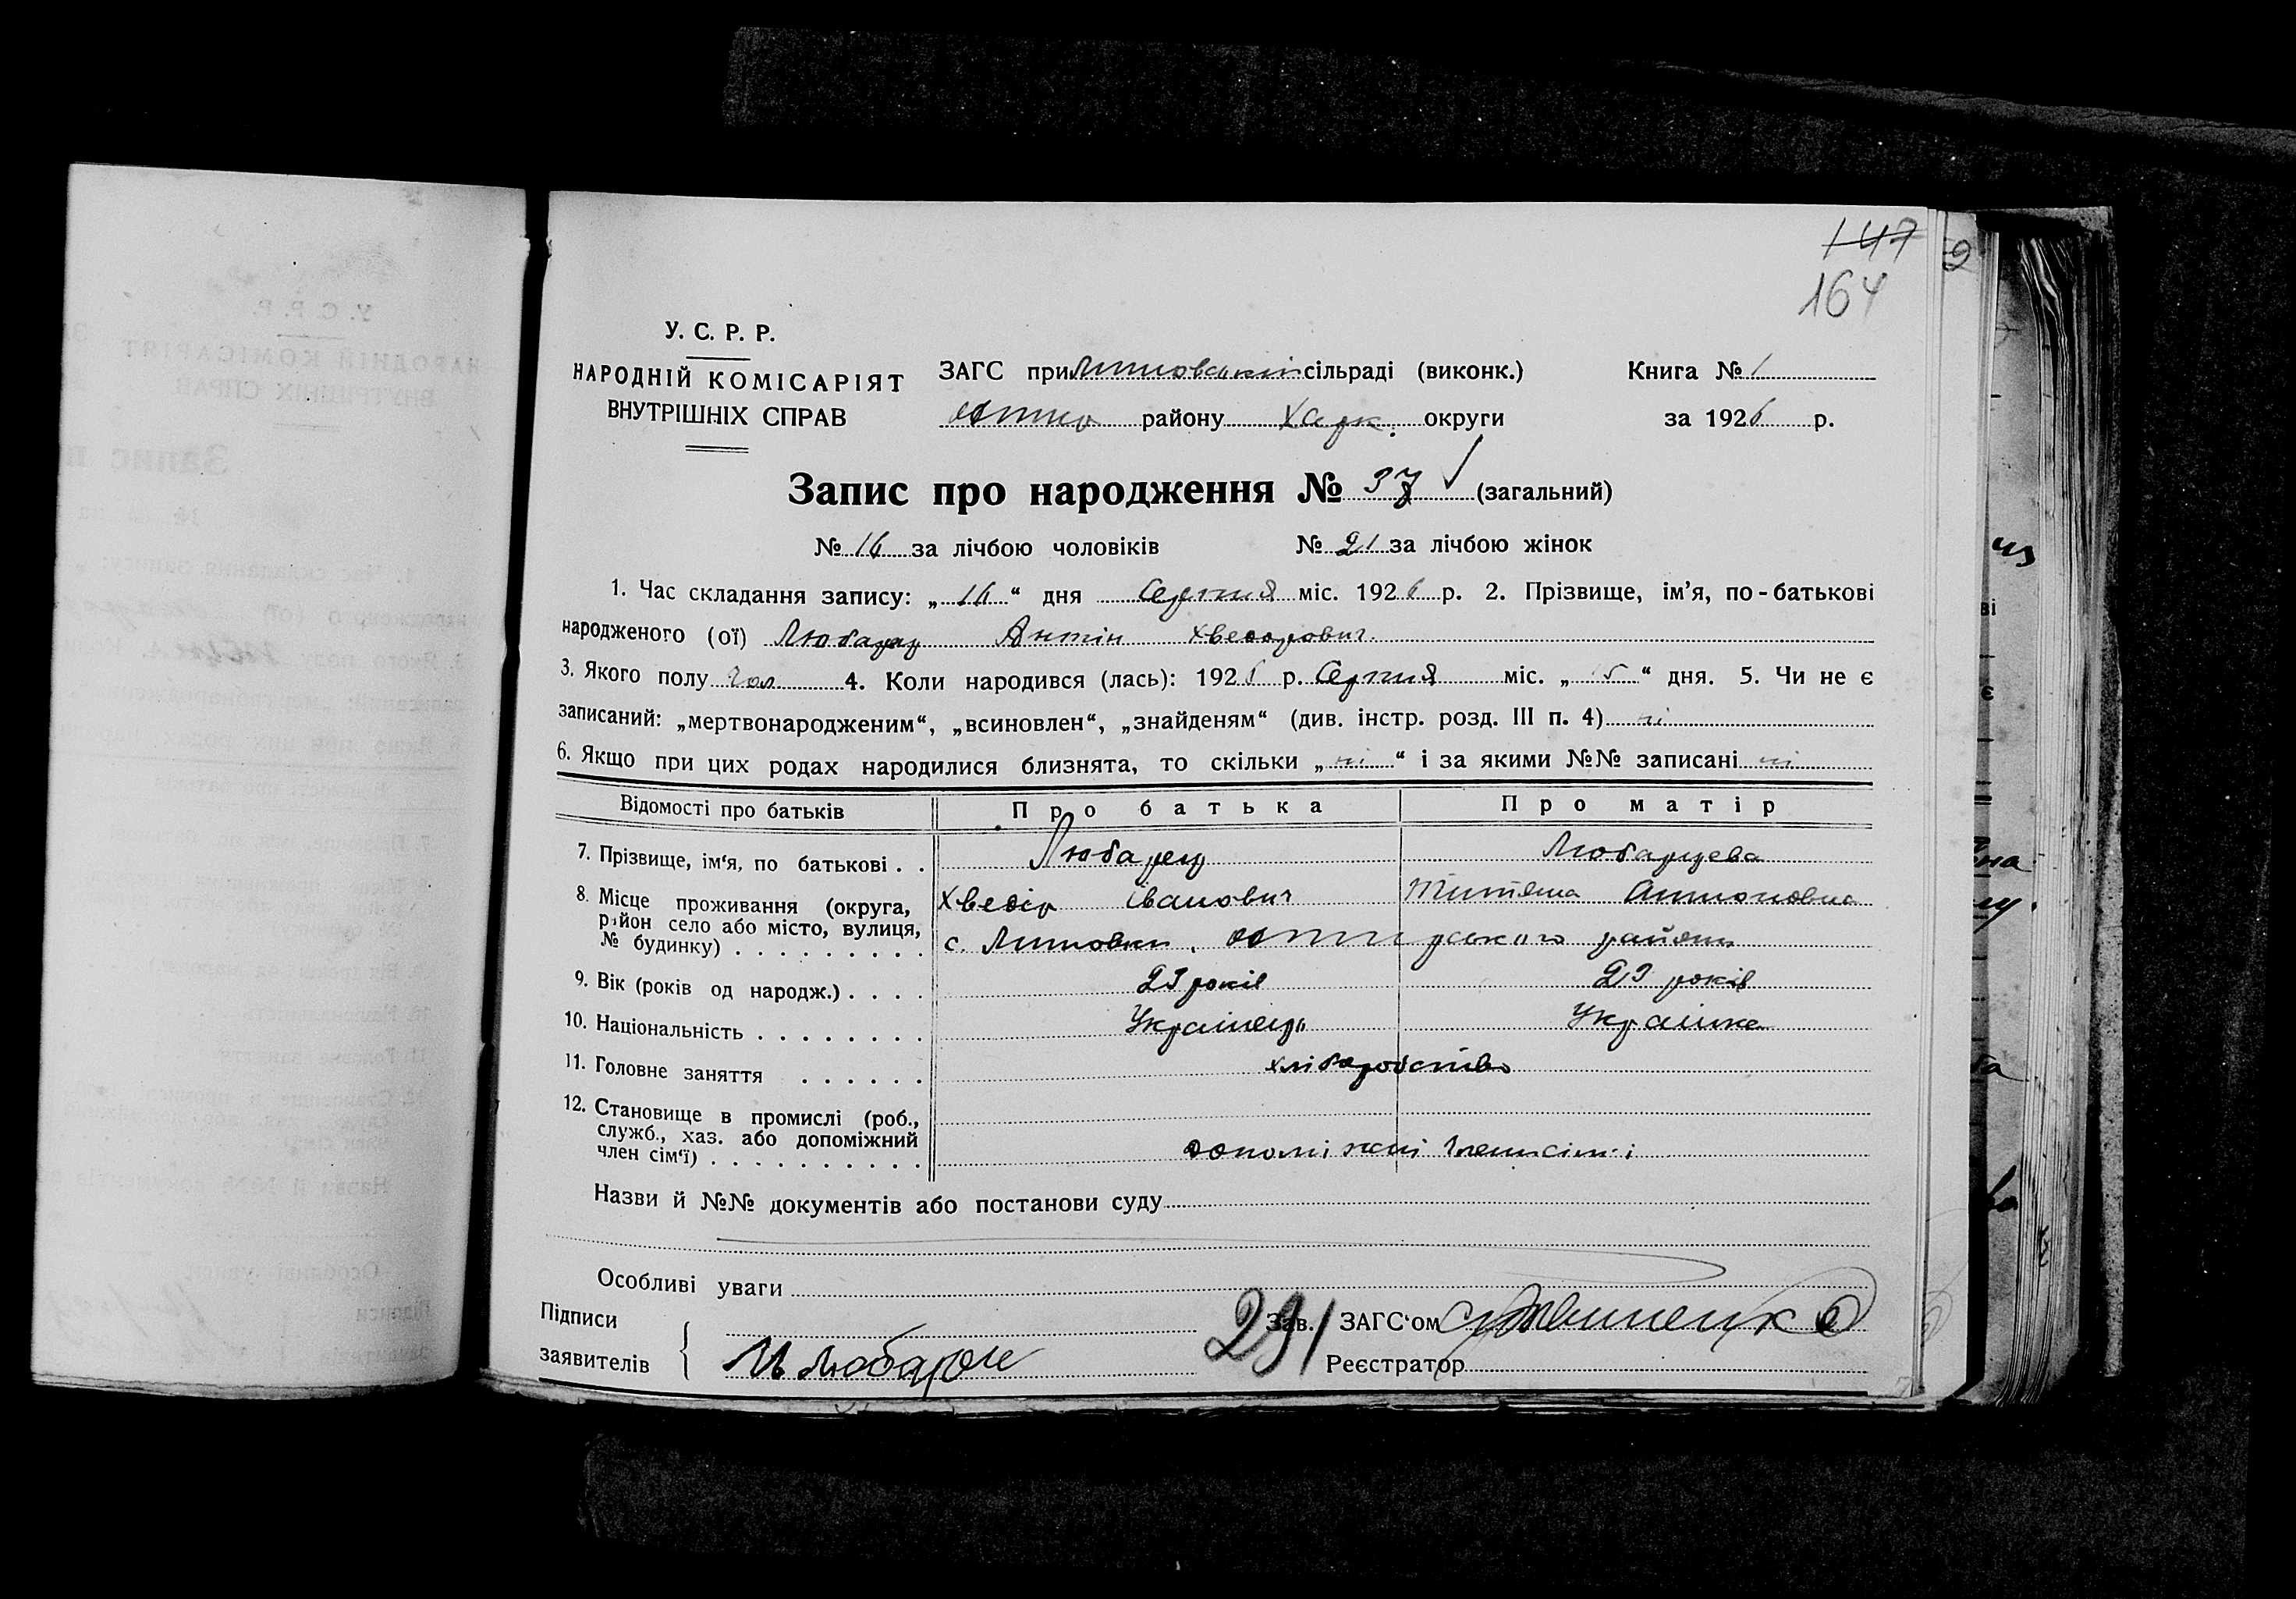 147
164
У. С. Р. Р.
НАРОДНІЙ КОМІСАРІЯТ
ВНУТРІШНІХ СПРАВ
ЗАГС при сільраді (виконк.)
району Харк. округи
Книга № 1
за 1926 р.
Запис про народження № 37 (загальний)
№ 16 за лічбою чоловіків № 21 за лічбою жінок
1. Час складання запису: „ 16 “ дня Серпня міс. 1926 р. 2. Прізвище, ім’я, по-батькові
народженого (ої) Любарец Антін Хведорович.
3. Якого полу Чол 4. Коли народився (лась): 192 р. Серпня міс. „ “ дня. 5. Чи не є
записаний: „мертвонародженим“, „всиновлен“, „знайденям“ (див. інстр. розд. III п. 4) ні
6. Якщо при цих родах народилися близнята, то скільки „ ні “ і за якими №№ записані ні
Відомості про батьків Про батька Про матір
7. Прізвище, ім‘я, по батькові . . Любарец Любарцева
8. Місце проживання (округа, Хведір Іванович Антоновна
район село або місто, вулиця,
№ будинку) . . . . . . . . . с. району
9. Вік (років од народж.) . . . . 23 років 23 років
10. Національність . . . . . . . . Українець Українка
11. Головне заняття . . . . . . хліборобство
12. Становище в промислі (роб.,
служб., хаз. або допоміжний
член сім‘ї) . . . . . . . . . . допоміжні члени сімі
Назви й №№ документів або постанови суду
Особливі уваги
Підписи
заявителів
291
Зав. ЗАГС‘ом
Реєстратор